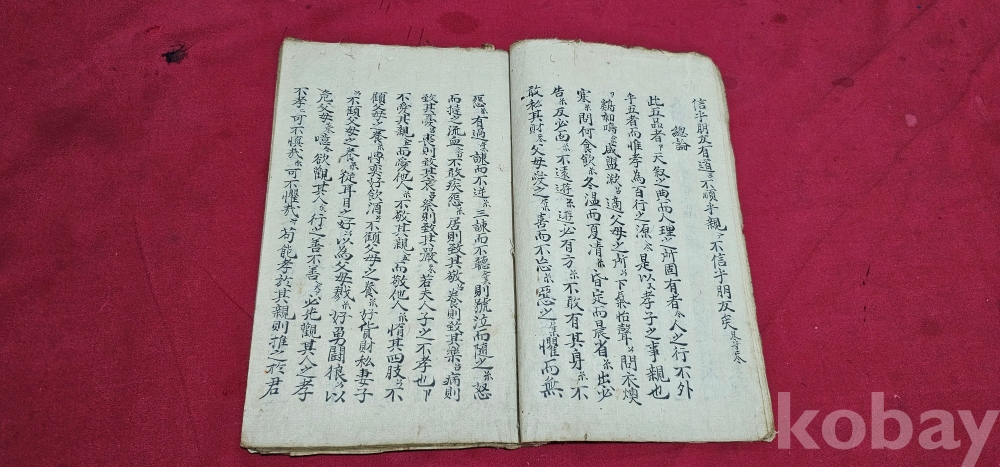 信乎朋友有道不順乎親不信乎朋友矣
總論
此五品者天敘之典而人理之所固有者人之行不外
乎五者而惟孝為百行之源是以孝子之事親也
鷄初鳴咸盥漱適父母之所下氣怡聲問衣燠
寒問何食飲冬溫而夏凊昏定而晨省出必
告反必面不遠遊遊必有方不敢有其身不
敢私其財父母愛之喜而不忘惡之懼而無
怨有過諫而不逆三諫而不聽則號泣而隨之怒
而撻之流血不敢疾怨居則致其敬養則致其樂病則
致其憂喪則致其哀祭則致其嚴若夫人子之不孝也
不愛其親而愛他人不敬其親而敬他人惰其四肢不
顧父母之養博奕好飲酒不顧父母之養好貨財私妻子
不顧父母之養從耳目之好以為父母戮好勇鬪狠以
危父母噫欲觀其人行之善不善必先觀其人之孝
不孝可不慎哉可不懼哉苟能孝於其親則推之於君
kobay